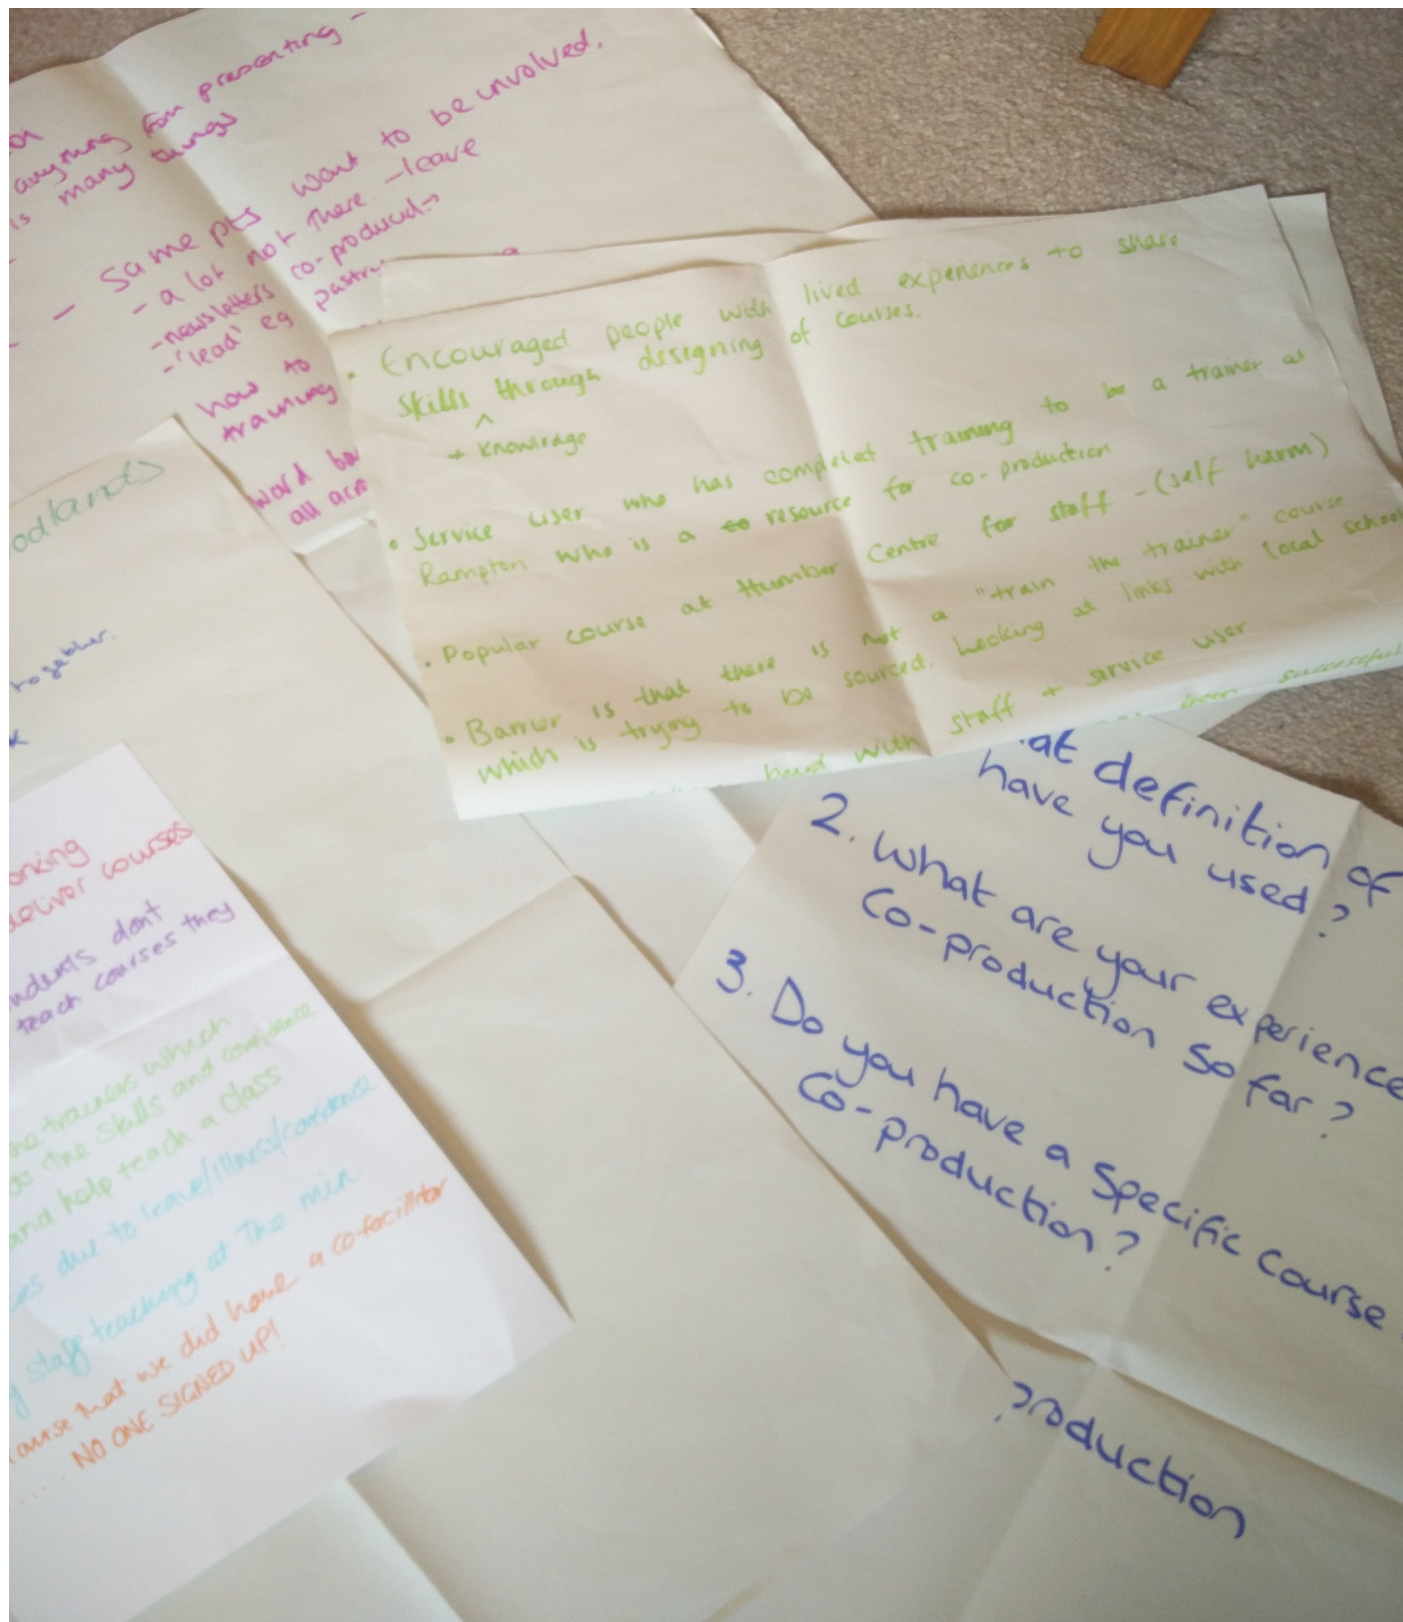 anything from presenting -
is many things
- same pts want to be involved.
- a lot not there - leave
- newsletters co-produced →
- 'lead' eg
how to
training
word
all
• Encouraged people with lived experiences to share
skills through designing of courses.
^
+ knowledge
• Service user who has completed training to be a trainer at
Rampton who is a resource for co-production
• Popular course at Humber Centre for staff - (self harm)
• Barrier is that there is not a "train the trainer" course
which is trying to be sourced. Looking at links with local school
with staff + service user
been successful
odlands
together.
onking
deliver courses
don't
teach courses they
the trainers which
the skills and confidence
and help teach a class
due to leave/illness/confidence
staff teaching at the min
course that we did have a co-facilitor
.... NO ONE SIGNED UP!
at definition of
have you used?
2. What are your experience
Co-production so far?
3. Do you have a specific course
Co-production?
production